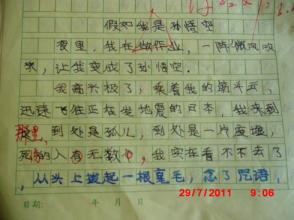 假如我是孙悟空
夜里,我在做作业,一阵微风吹
来,让我变成了孙悟空。
我高兴极了,乘着我的筋斗云,
迅速飞往正在发地震的日本,我来到
那里,到处是孤儿,到处是一片废墟,
死的人有无数,我实在看不下去了
,从头上拔起一根毫毛,念了咒语,
29/7/2011 9:06
日期: 年 月 日